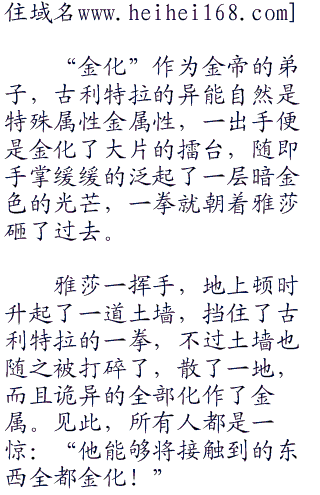 住域名www.heihei168.com]
“金化”作为金帝的弟
子，古利特拉的异能自然是
特殊属性金属性，一出手便
是金化了大片的擂台，随即
手掌缓缓的泛起了一层暗金
色的光芒，一拳就朝着雅莎
砸了过去。
雅莎一挥手，地上顿时
升起了一道土墙，挡住了古
利特拉的一拳，不过土墙也
随之被打碎了，散了一地，
而且诡异的全部化作了金
属。见此，所有人都是一
惊：“他能够将接触到的东
西全都金化！”